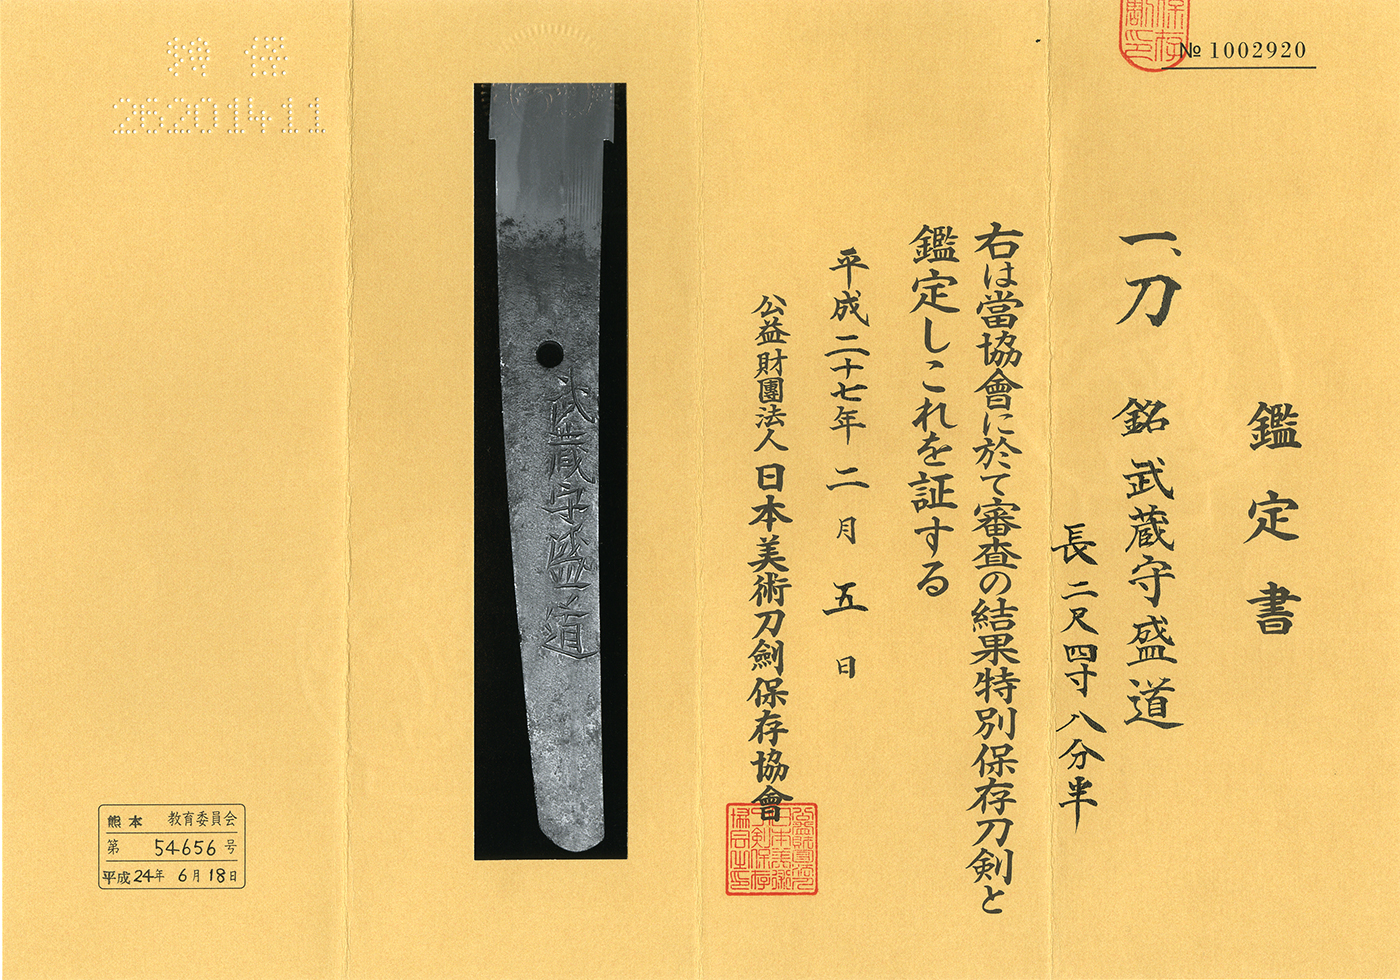 № 1002920
鑑定書
一、刀 銘 武蔵守盛道
長二尺四寸八分半
右は當協會に於て審査の結果特別保存刀剣と
鑑定しこれを証する
平成二十七年二月五日
公益財團法人日本美術刀劍保存協會
武蔵守盛道
特保
26201411
熊本 教育委員会
第 54656 号
平成24年 6月18日